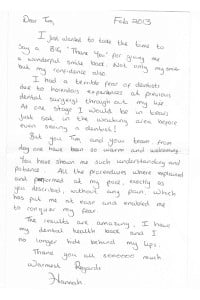 Dear Tom, Feb 2013
I just wanted to take the time to
say a BIG "Thank You" for giving me
a wonderful smile back. Not only my smile
but my confidence also.
I had a terrible fear of dentists
due to horrendous experiences at previous
dental surgerys through out my life.
At one stage I would be in tears
just sat in the waiting area before
even seeing a dentist!
But you Tom, and your team from
day one have been so warm and welcoming.
You have shown me such understanding and
patience. All the proceedures where explained
and performed at my pace, exactly as
you described, without any pain. Which
has put me at ease and enabled me
to conquer my fear.
The results are amazing. I have
my dental health back and I
no longer hide behind my lips.
Thank you all soooooo much
Warmest Regards
Hannah